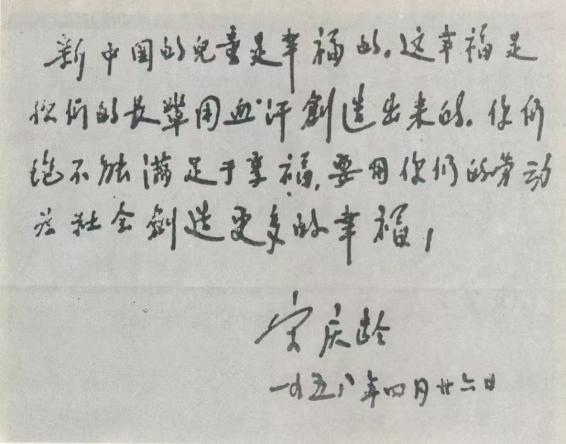 新中国的兒童是幸福的。这幸福是
你们的長輩用血汗創造出来的。你们
绝不能满足于享福，要用你们的劳动
为社会創造更多的幸福！
宋庆龄
一九五八年四月廿六日